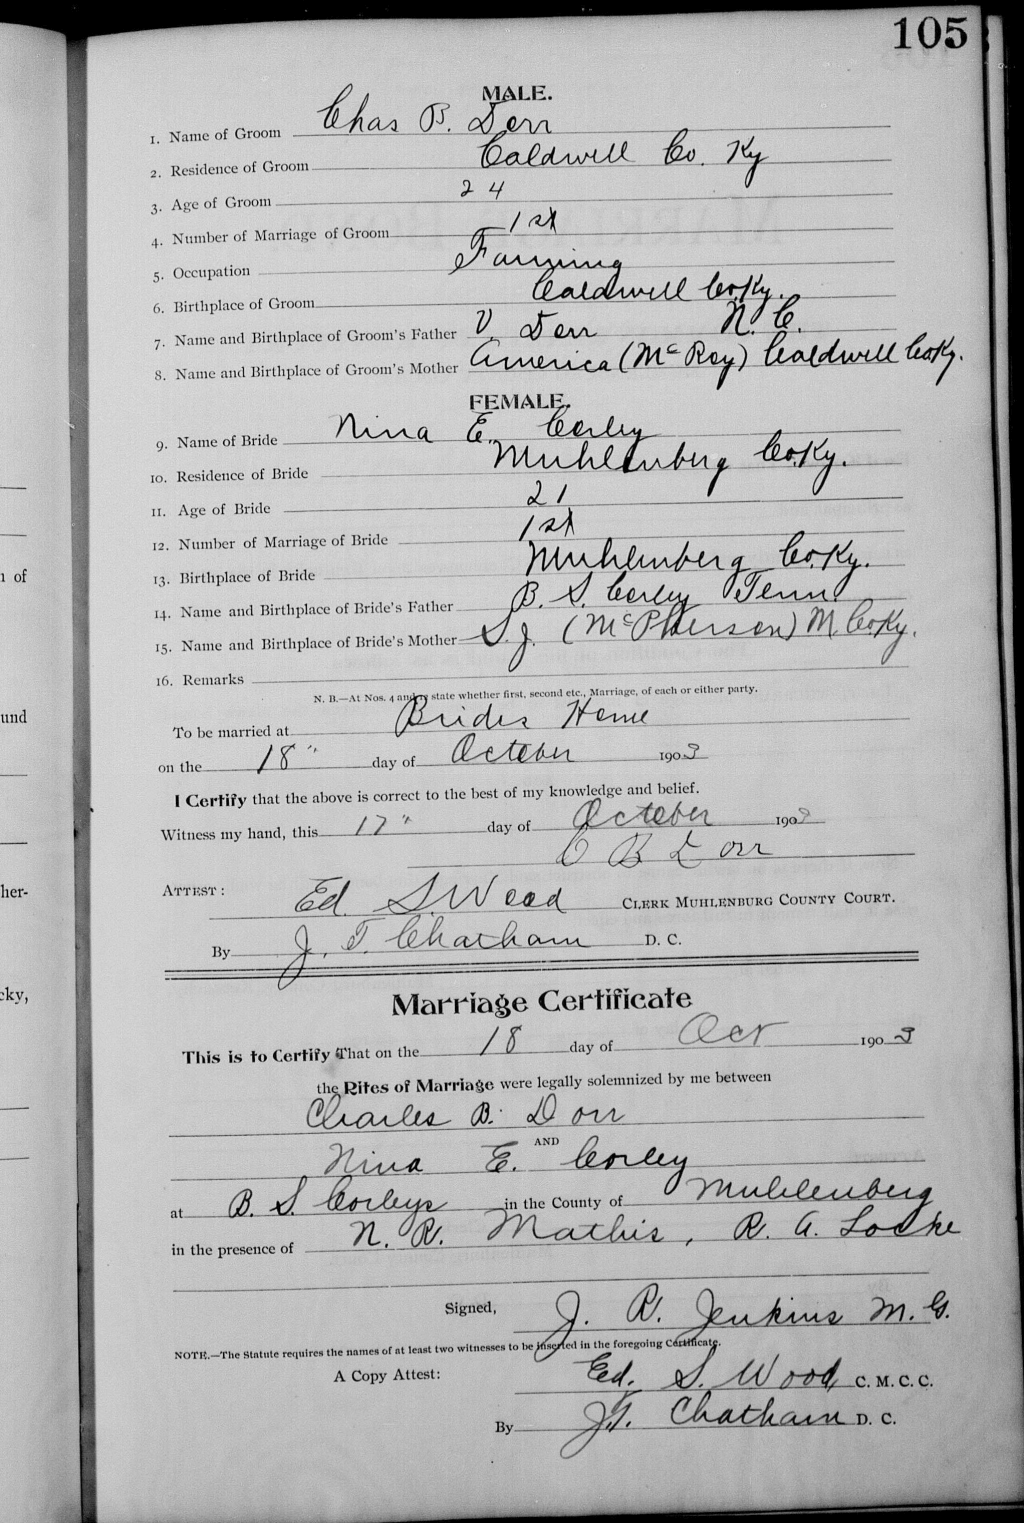 105
MALE.
1. Name of Groom Chas B. Dorr
2. Residence of Groom Caldwell Co. Ky
3. Age of Groom 24
4. Number of Marriage of Groom 1st
5. Occupation Farming
6. Birthplace of Groom Caldwell Co. Ky.
7. Name and Birthplace of Groom's Father V Dorr N. C.
8. Name and Birthplace of Groom's Mother America (McRoy) Caldwell Co Ky.
FEMALE.
9. Name of Bride Nina E. Corley
10. Residence of Bride Muhlenberg Co. Ky.
11. Age of Bride 21
12. Number of Marriage of Bride 1st
13. Birthplace of Bride Muhlenberg Co. Ky.
14. Name and Birthplace of Bride's Father B. S. Corley Tenn.
15. Name and Birthplace of Bride's Mother S. J. (McPherson) M. Co Ky.
16. Remarks
N. B.—At Nos. 4 and 12 state whether first, second etc., Marriage, of each or either party.
To be married at Brides Home
on the 18" day of October 1903
I Certify that the above is correct to the best of my knowledge and belief.
Witness my hand, this 17" day of October 1903
C B Dorr
ATTEST: Ed. S. Wood CLERK MUHLENBURG COUNTY COURT.
By J. T. Chatham D. C.
Marriage Certificate
This is to Certify That on the 18 day of Oct 1903
the Rites of Marriage were legally solemnized by me between
Charles B. Dorr
AND
Nina E. Corley
at B. S. Corleys in the County of Muhlenberg
in the presence of N. R. Mathis, R. A. Locke
Signed, J. R. Jenkins M. G.
NOTE.—The Statute requires the names of at least two witnesses to be inserted in the foregoing Certificate.
A Copy Attest: Ed. S. Wood C. M. C. C.
By J. T. Chatham D. C.
n of
und
her-
cky,